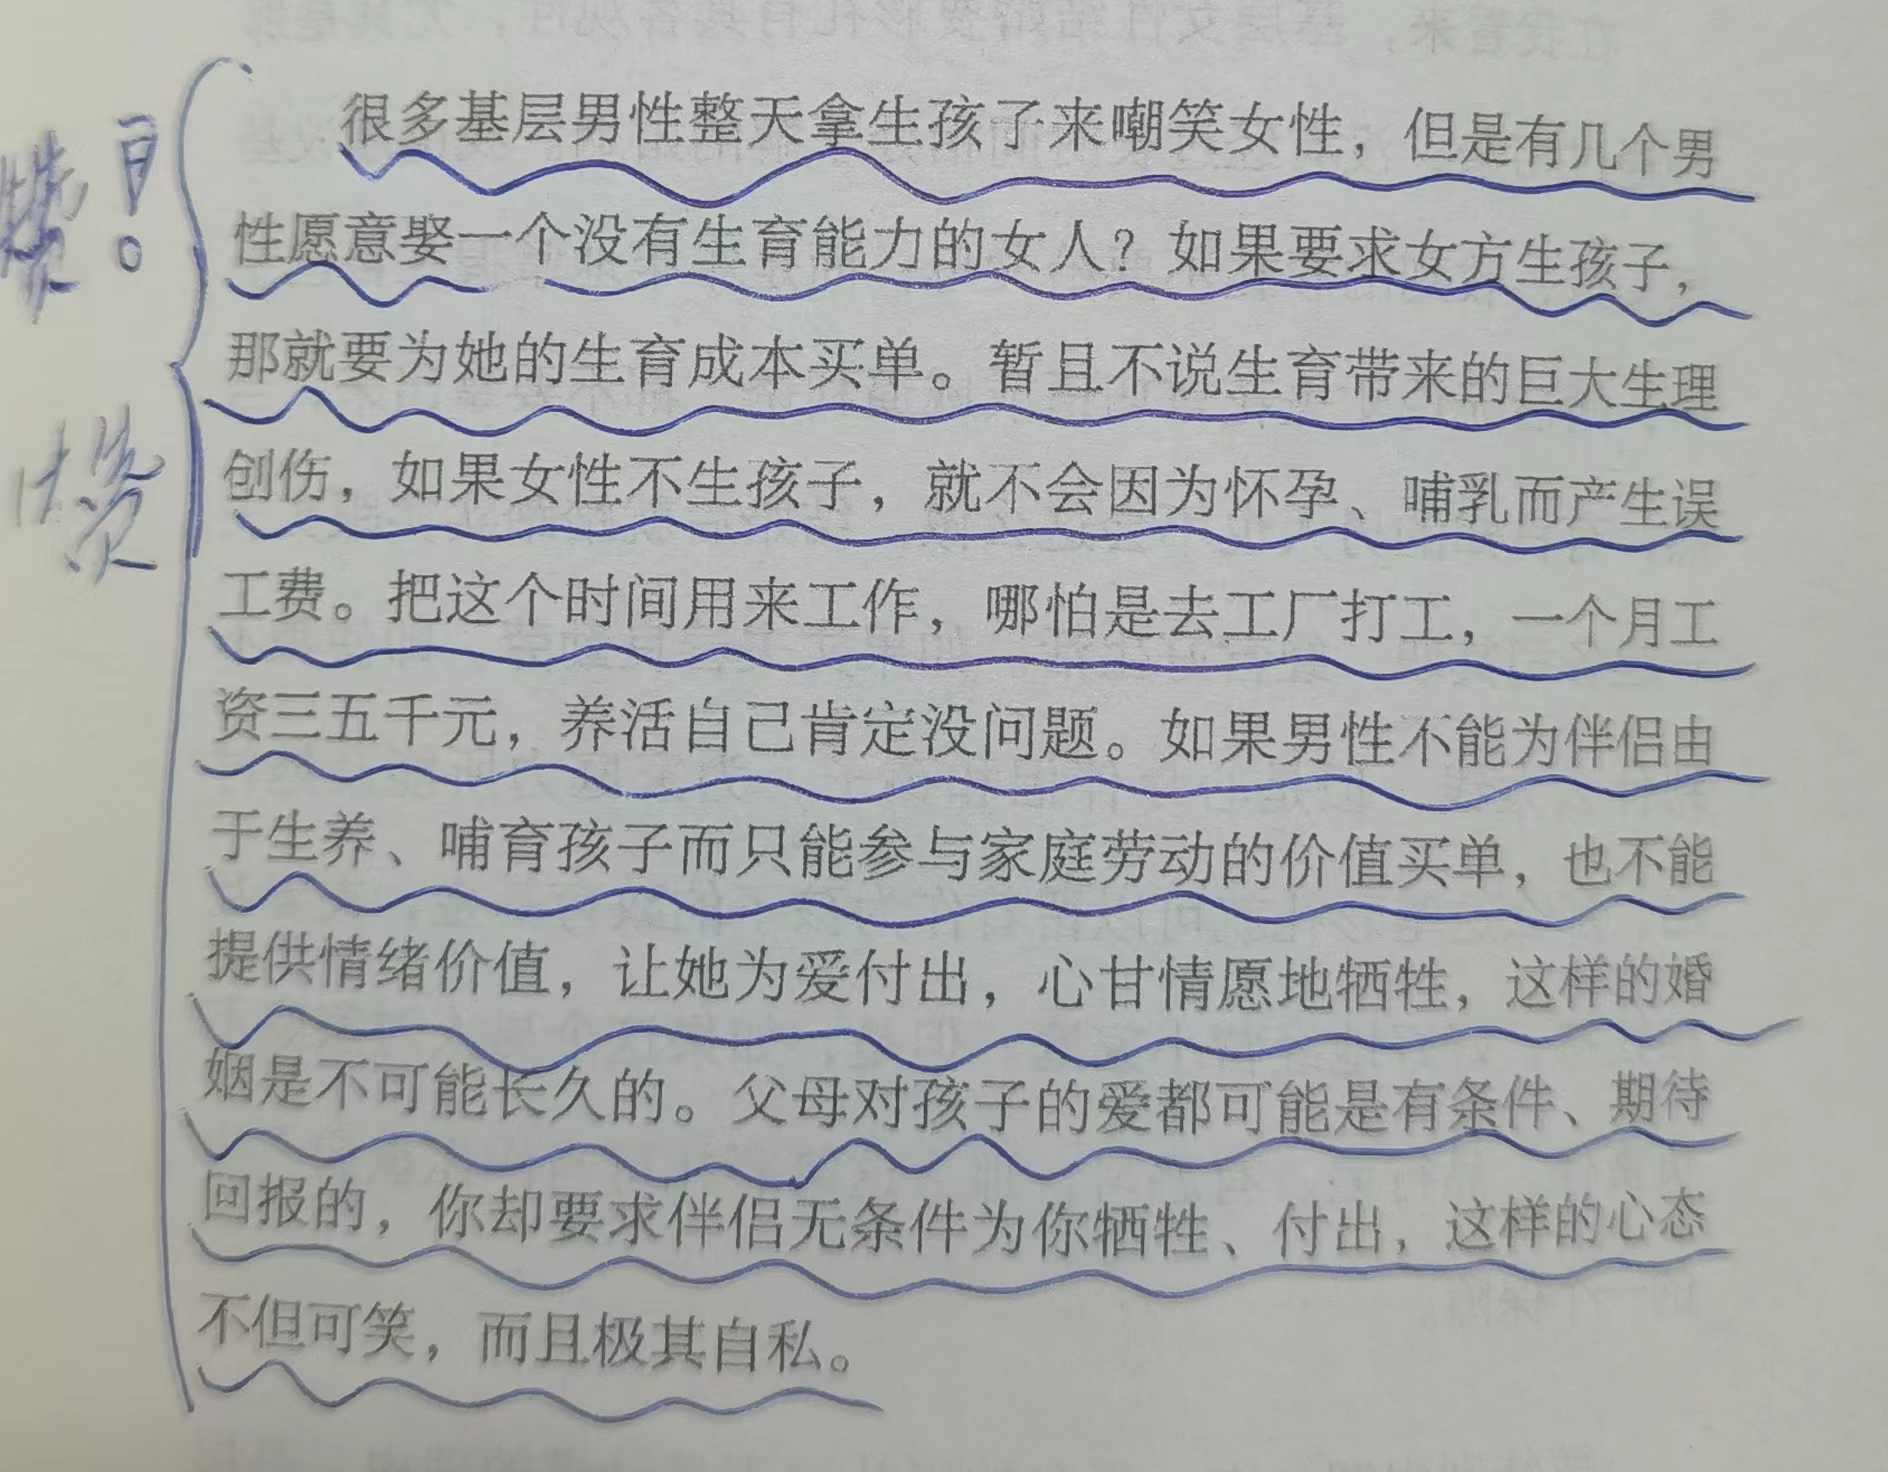 很多基层男性整天拿生孩子来嘲笑女性，但是有几个男
性愿意娶一个没有生育能力的女人？如果要求女方生孩子，
那就要为她的生育成本买单。暂且不说生育带来的巨大生理
创伤，如果女性不生孩子，就不会因为怀孕、哺乳而产生误
工费。把这个时间用来工作，哪怕是去工厂打工，一个月工
资三五千元，养活自己肯定没问题。如果男性不能为伴侣由
于生养、哺育孩子而只能参与家庭劳动的价值买单，也不能
提供情绪价值，让她为爱付出，心甘情愿地牺牲，这样的婚
姻是不可能长久的。父母对孩子的爱都可能是有条件、期待
回报的，你却要求伴侣无条件为你牺牲、付出，这样的心态
不但可笑，而且极其自私。